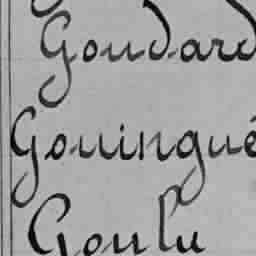 Goudard
Gouingué
Goulu